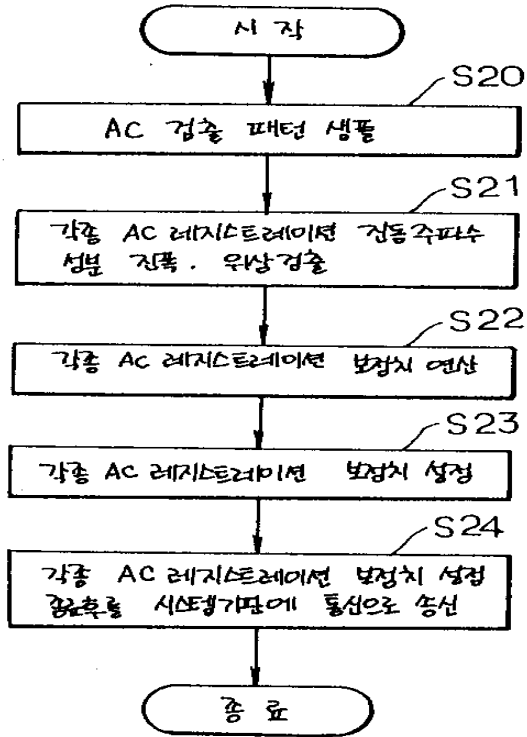 시 작
S20
AC 검출 패턴 샘플
S21
각종 AC 레지스트레이션 진동주파수
성분 진폭. 위상검출
S22
각종 AC 레지스트레이션 보정치 연산
S23
각종 AC 레지스트레이션 보정치 설정
S24
각종 AC 레지스트레이션 보정치 설정
종료후를 시스템기판에 통신으로 송신
종 료